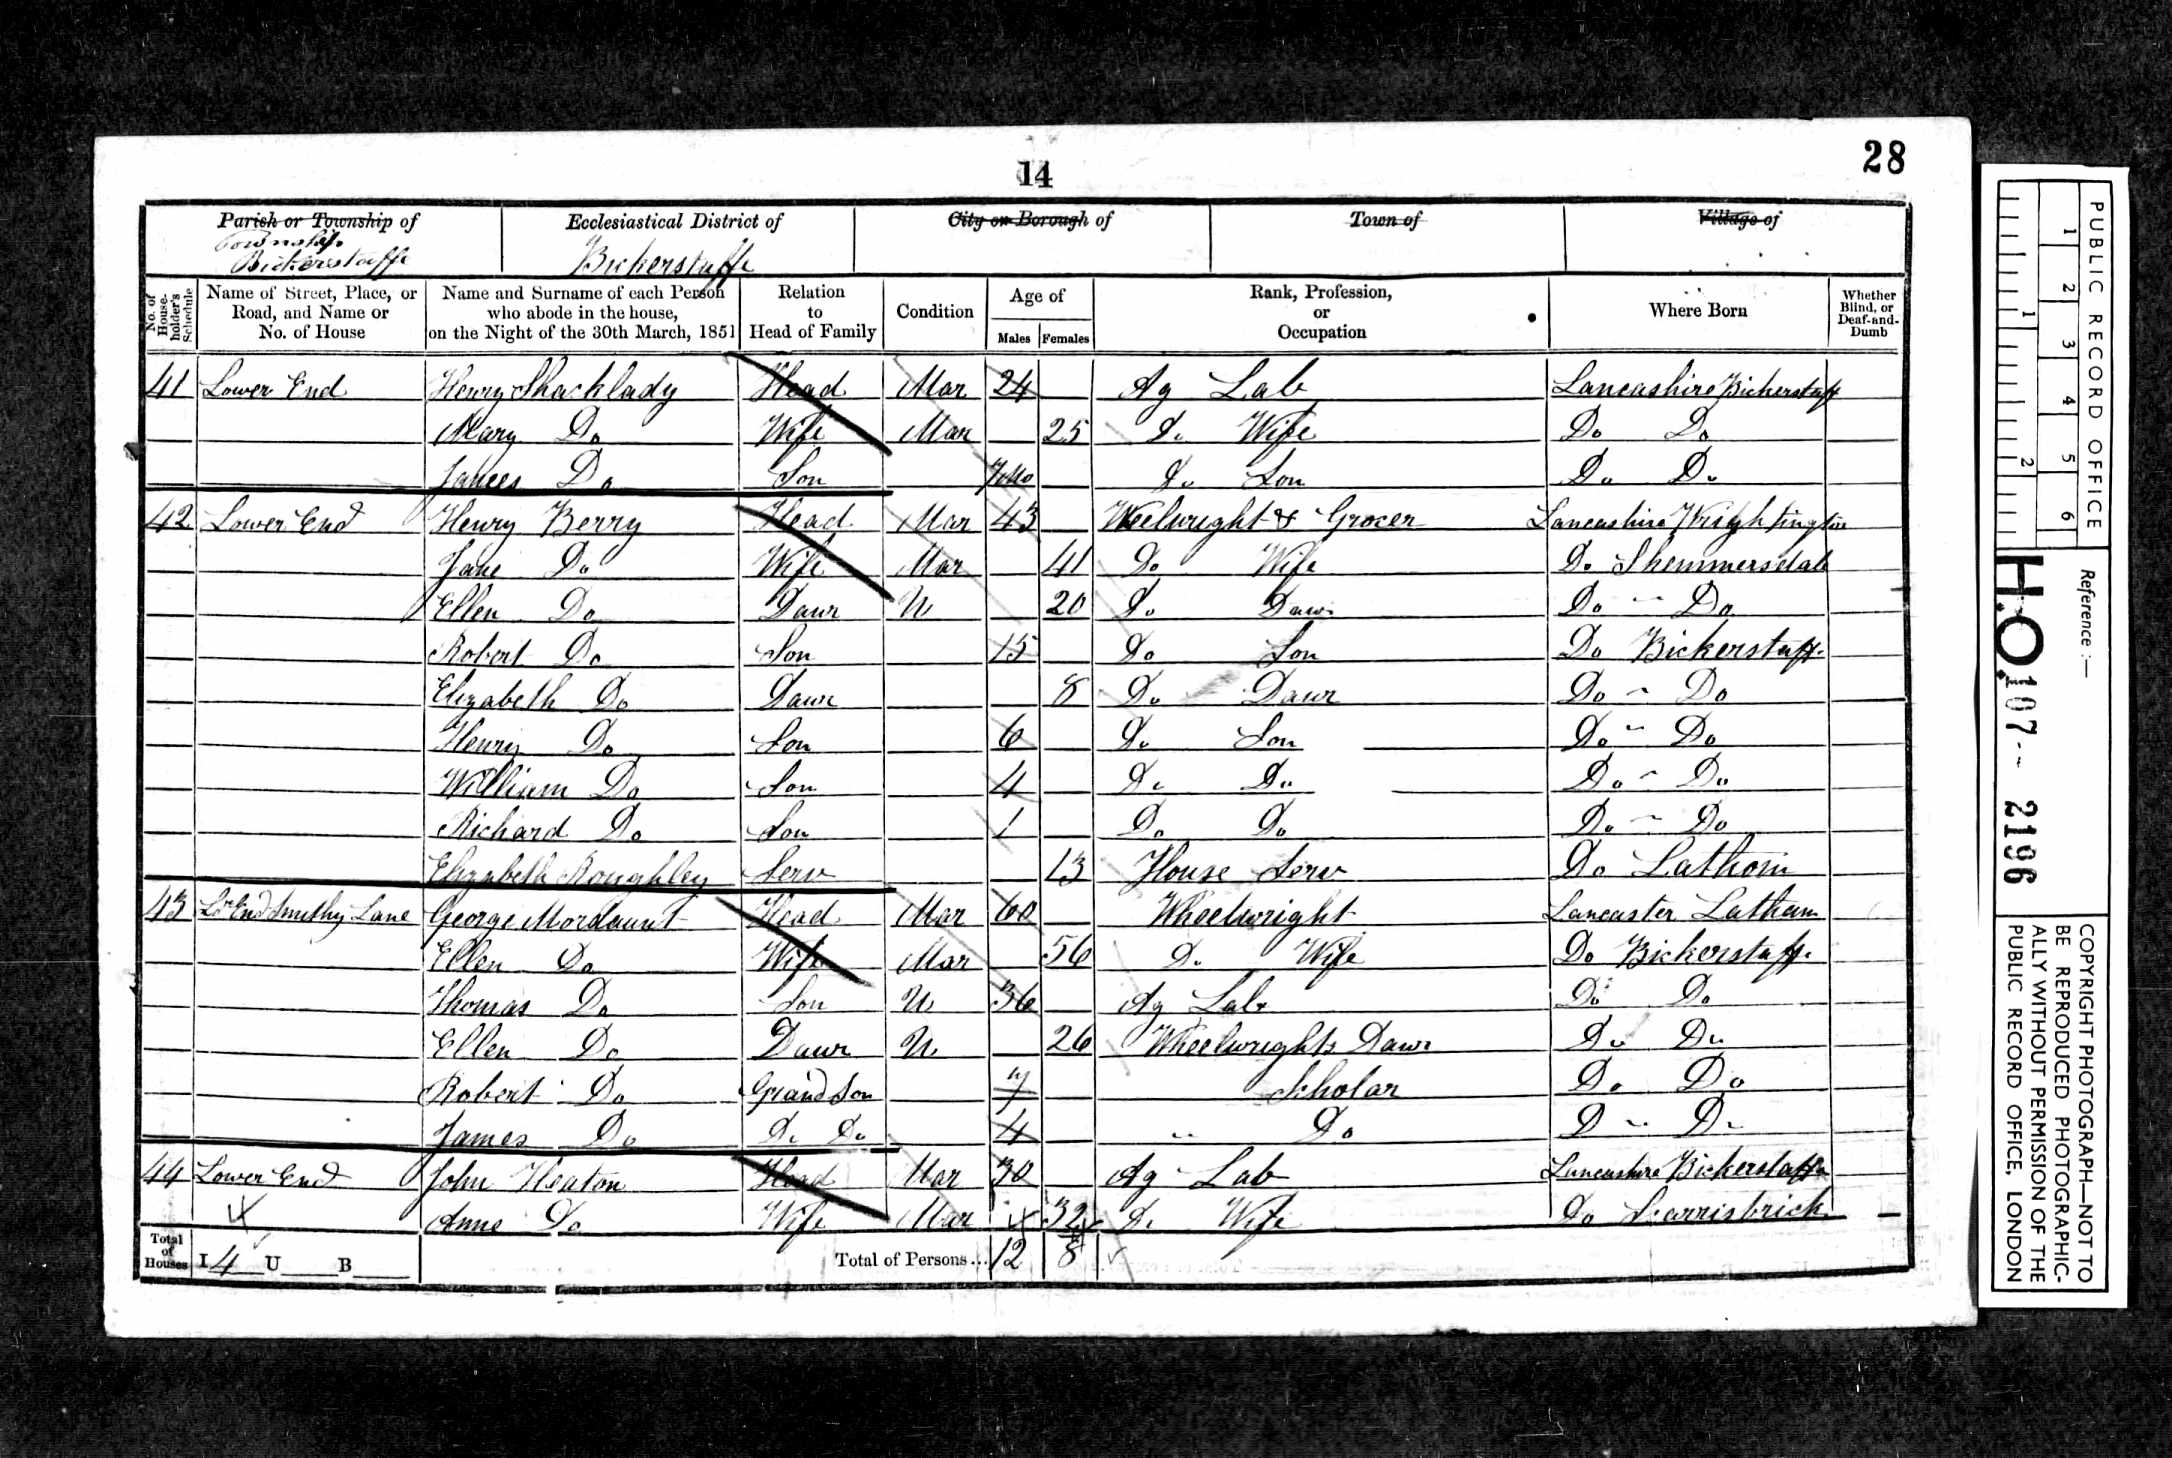 28
14
Parish or Township of Ecclesiastical District of City or Borough of Town of Village of
Township
Bickerstaffe Bickerstaffe
No. of House-holder's Schedule Name of Street, Place, or Road, and Name or No. of House Name and Surname of each Person who abode in the house, on the Night of the 30th March, 1851 Relation to Head of Family Condition Age of Males Females Rank, Profession, or Occupation Where Born Whether Blind, or Deaf-and-Dumb
41 Lower End Henry Shacklady Head Mar 24 Ag Lab Lancashire Bickerstaff
Mary Do Wife Mar 25 Do Wife Do Do
James Do Son 7 Mo Do Son Do Do
42 Lower End Henry Berry Head Mar 43 Weelwright & Grocer Lancashire Wrightington
Jane Do Wife Mar 41 Do Wife Do Skemmersdale
Ellen Do Dawr U 20 Do Dawr Do Do
Robert Do Son 15 Do Son Do Bickerstaff
Elizabeth Do Dawr 8 Do Dawr Do Do
Henry Do Son 6 Do Son Do Do
William Do Son 4 Do Do Do Do
Richard Do Son 1 Do Do Do Do
Elizabeth Roughley Serv 13 House Serv Do Lathom
43 Lr End Smithy Lane George Mordaunt Head Mar 60 Wheelwright Lancaster Latham
Ellen Do Wife Mar 56 Do Wife Do Bickerstaff
Thomas Do Son U 36 Ag Lab Do Do
Ellen Do Dawr U 26 Wheelwrights Dawr Do Do
Robert Do Grandson 7 Scholar Do Do
James Do Do Do 4 Do D Do
44 Lower End John Heaton Head Mar 30 Ag Lab Lancashire Bickerstaffe
4 Anne Do Wife Mar 32 Do Wife Do Scarrisbrick
Total of Houses I 4 U B Total of Persons... 12 8
PUBLIC RECORD OFFICE
1 2 3 4 5 6
1 2
Reference :—
H.O. 107 -- 2196
COPYRIGHT PHOTOGRAPH—NOT TO
BE REPRODUCED PHOTOGRAPHIC-
ALLY WITHOUT PERMISSION OF THE
PUBLIC RECORD OFFICE, LONDON